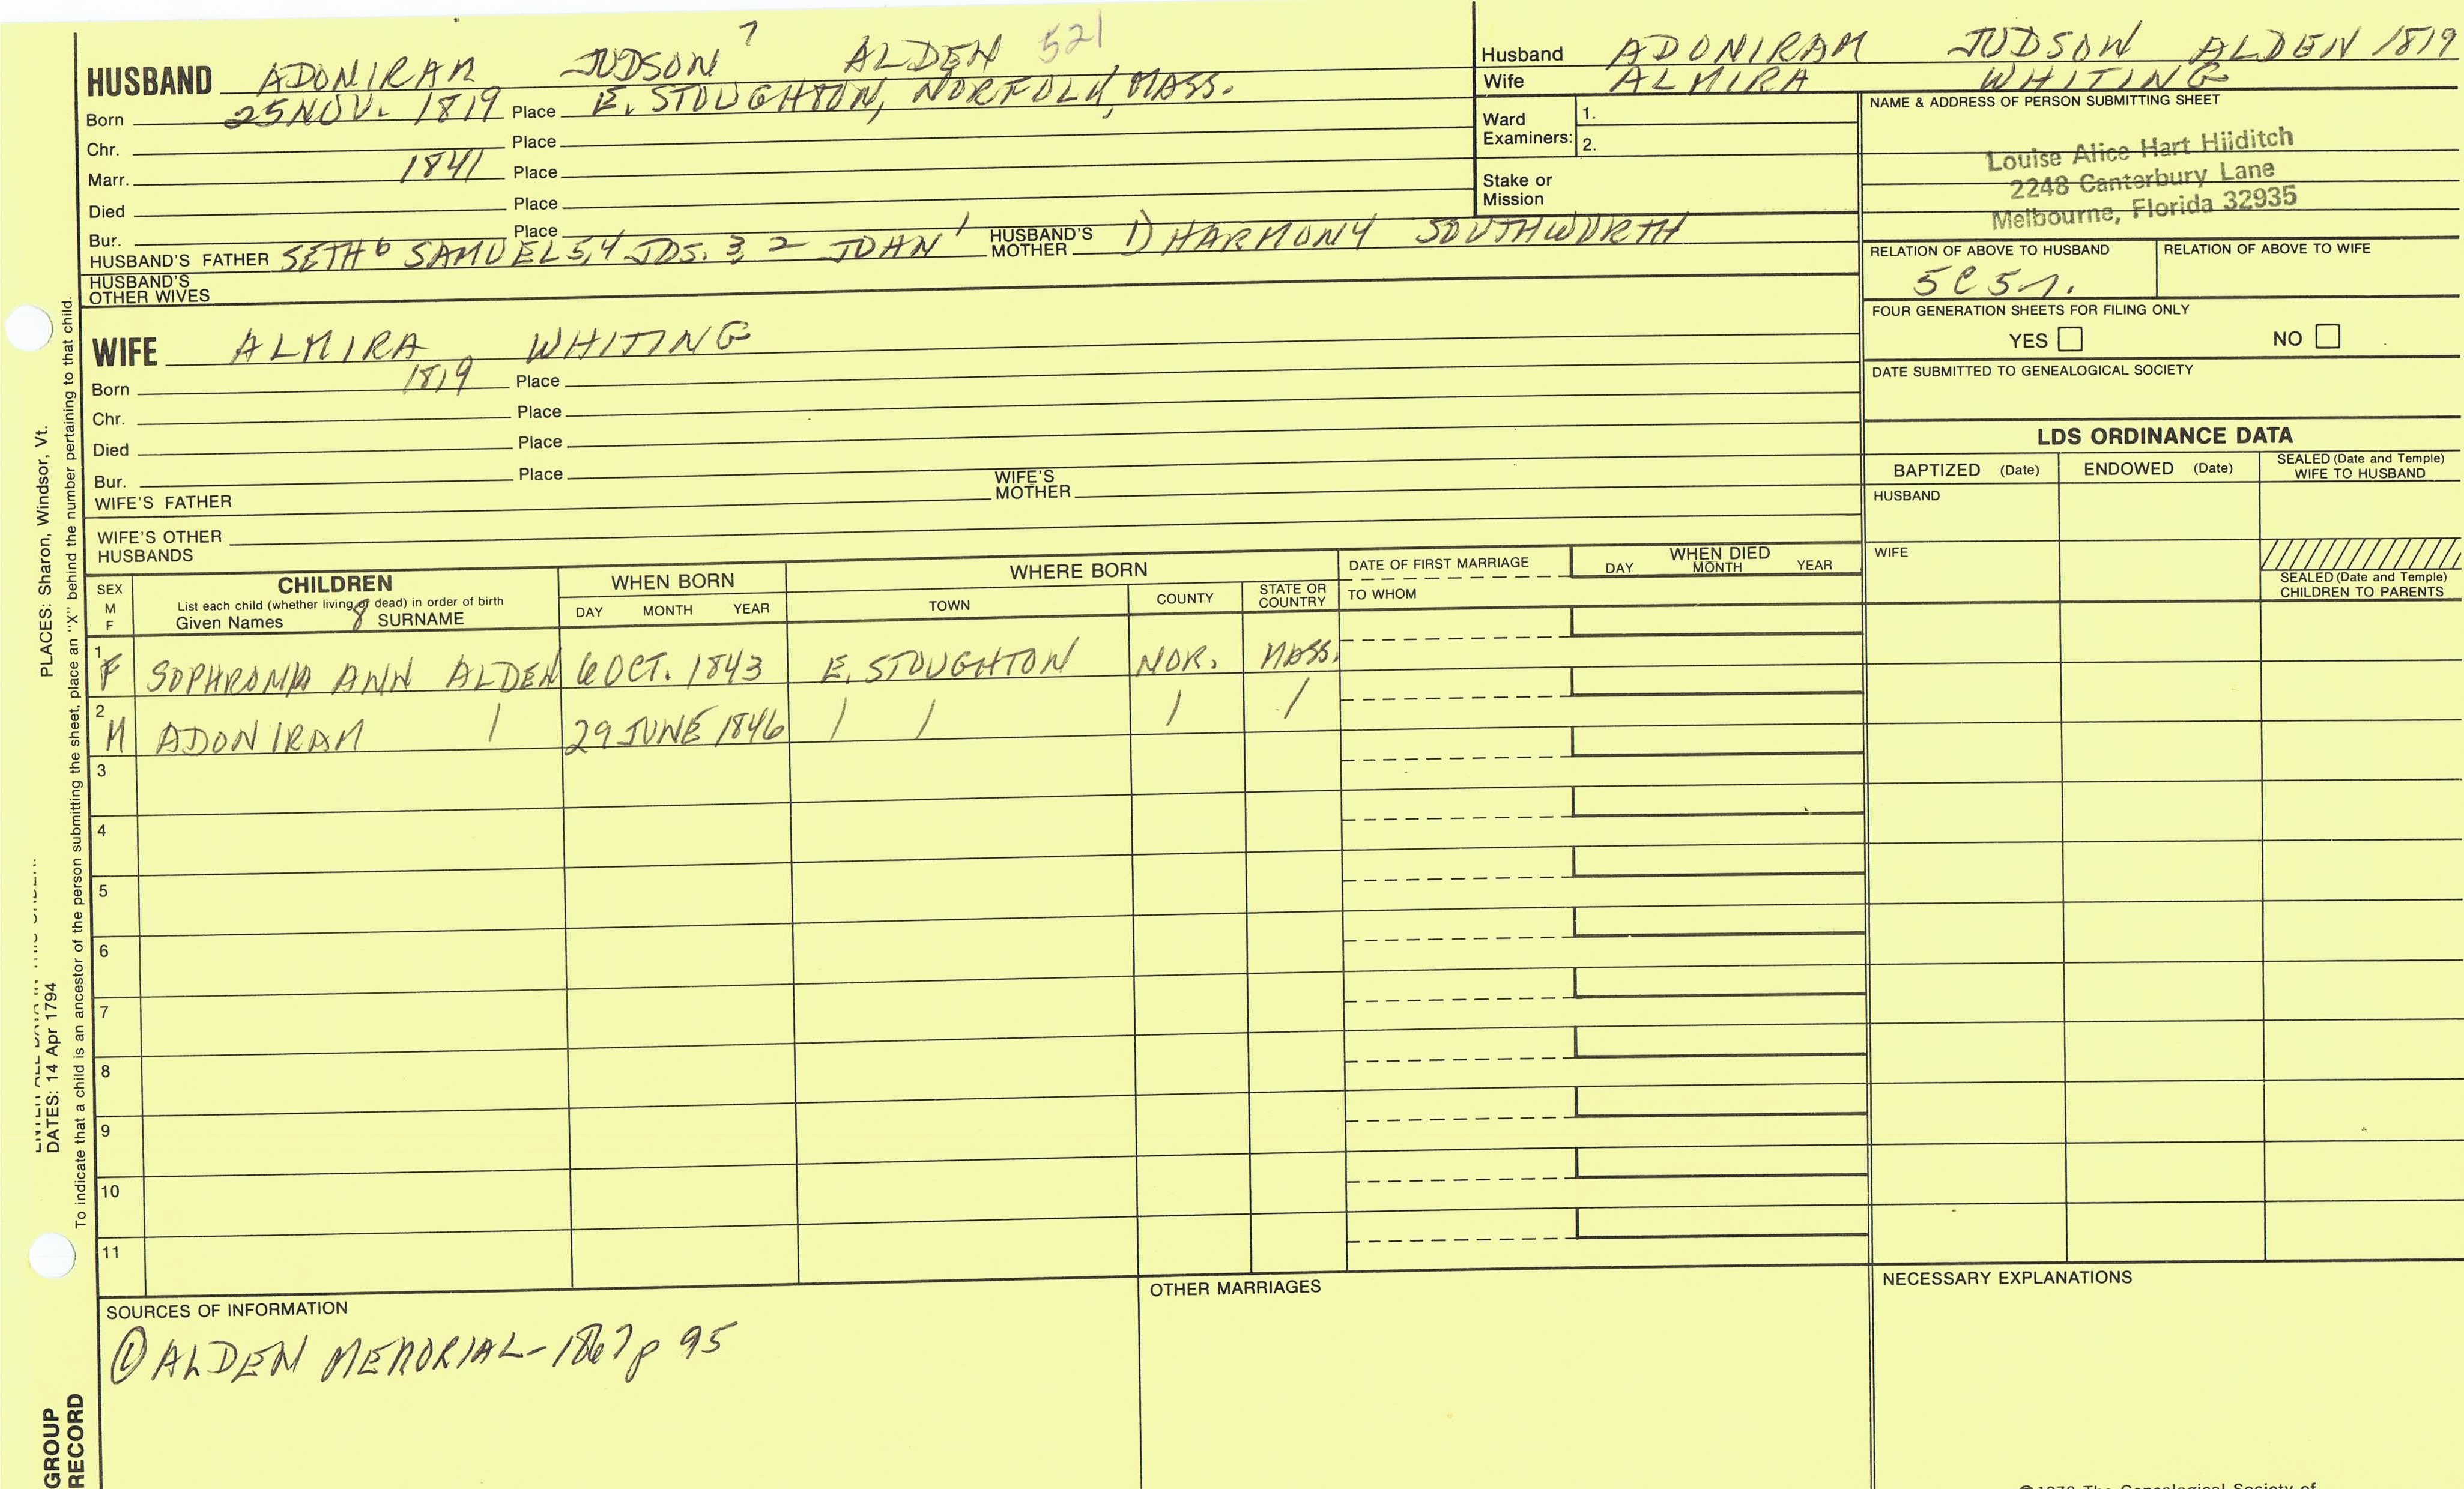 HUSBAND ADONIRAM JUDSON 7 ALDEN 521
Born 25 NOV. 1819 Place E. STOUGHTON, NORFOLK, MASS.
Chr. Place
Marr. 1841 Place
Died Place
Bur. Place
HUSBAND'S FATHER SETH 6 SAMUEL 5,4 JOS. 3, 2 JOHN 1 HUSBAND'S MOTHER 1) HARMONY SOUTHWORTH
HUSBAND'S OTHER WIVES
WIFE ALMIRA WHITING
Born 1819 Place
Chr. Place
Died Place
Bur. Place
WIFE'S FATHER WIFE'S MOTHER
WIFE'S OTHER HUSBANDS
Husband ADONIRAM JUDSON ALDEN 1819
Wife ALMIRA WHITING
Ward Examiners: 1.
2.
Stake or Mission
NAME & ADDRESS OF PERSON SUBMITTING SHEET
Louise Alice Hart Hiiditch
2248 Canterbury Lane
Melbourne, Florida 32935
RELATION OF ABOVE TO HUSBAND RELATION OF ABOVE TO WIFE
5C5
FOUR GENERATION SHEETS FOR FILING ONLY
YES NO
DATE SUBMITTED TO GENEALOGICAL SOCIETY
LDS ORDINANCE DATA
BAPTIZED (Date) ENDOWED (Date) SEALED (Date and Temple) WIFE TO HUSBAND
HUSBAND
WIFE
SEALED (Date and Temple) CHILDREN TO PARENTS
SEX M F CHILDREN WHEN BORN WHERE BORN DATE OF FIRST MARRIAGE WHEN DIED
List each child (whether living or dead) in order of birth
Given Names 8 SURNAME DAY MONTH YEAR TOWN COUNTY STATE OR COUNTRY TO WHOM DAY MONTH YEAR
1 F SOPHRONIA ANN ALDEN 6 OCT. 1843 E. STOUGHTON NOR. MASS.
2 M ADONIRAM / 29 JUNE 1846 / / / /
3
4
5
6
7
8
9
10
11
SOURCES OF INFORMATION
① ALDEN MEMORIAL-1867 p 95
OTHER MARRIAGES
NECESSARY EXPLANATIONS
PLACES: Sharon, Windsor, Vt.
DATES: 14 Apr 1794
To indicate that a child is an ancestor of the person submitting the sheet, place an "X" behind the number pertaining to that child.
GROUP
RECORD